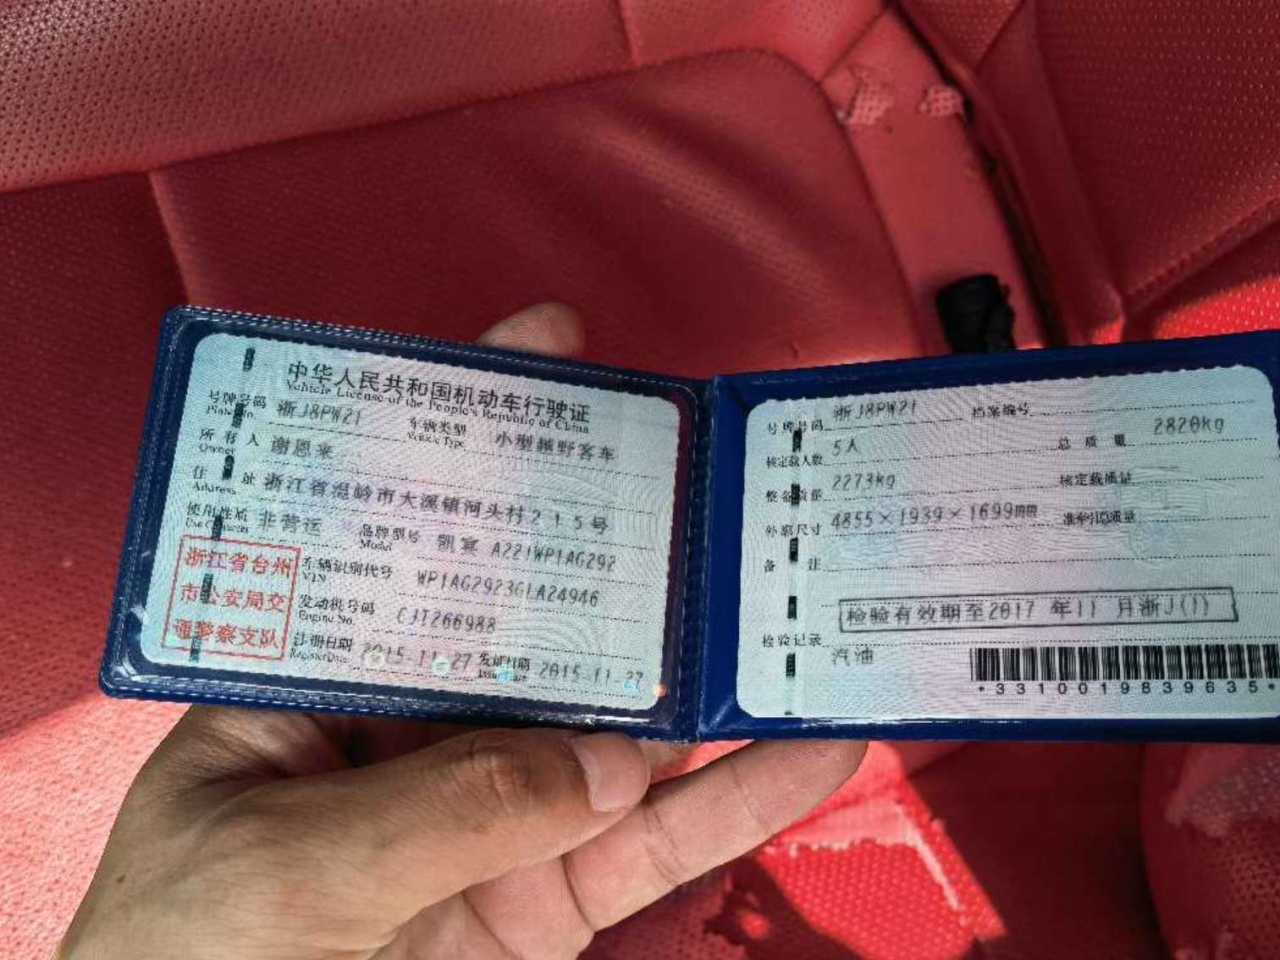 中华人民共和国机动车行驶证
Vehicle License of the People's Republic of China
号牌号码 浙J8PW21 车辆类型 小型越野客车
Plate No. Vehicle Type
所有人 谢恩来
Owner
住址 浙江省温岭市大溪镇河头村215号
Address
使用性质 非营运 品牌型号 凯宴 A221WP1AG292
Use Character Model
浙江省台州
市公安局交
通警察支队
车辆识别代号 WP1AG2923GLA24946
VIN
发动机号码 CJT266988
Engine No.
注册日期 2015-11-27 发证日期 2015-11-27
Register Date Issue Date
号牌号码 浙J8PW21 档案编号
核定载人数 5人 总质量 2820kg
整备质量 2273kg 核定载质量
外廓尺寸 4855×1939×1699mm 准牵引总质量
备注
检验有效期至2017 年11 月浙J(1)
检验记录
汽油
*3310019839635*